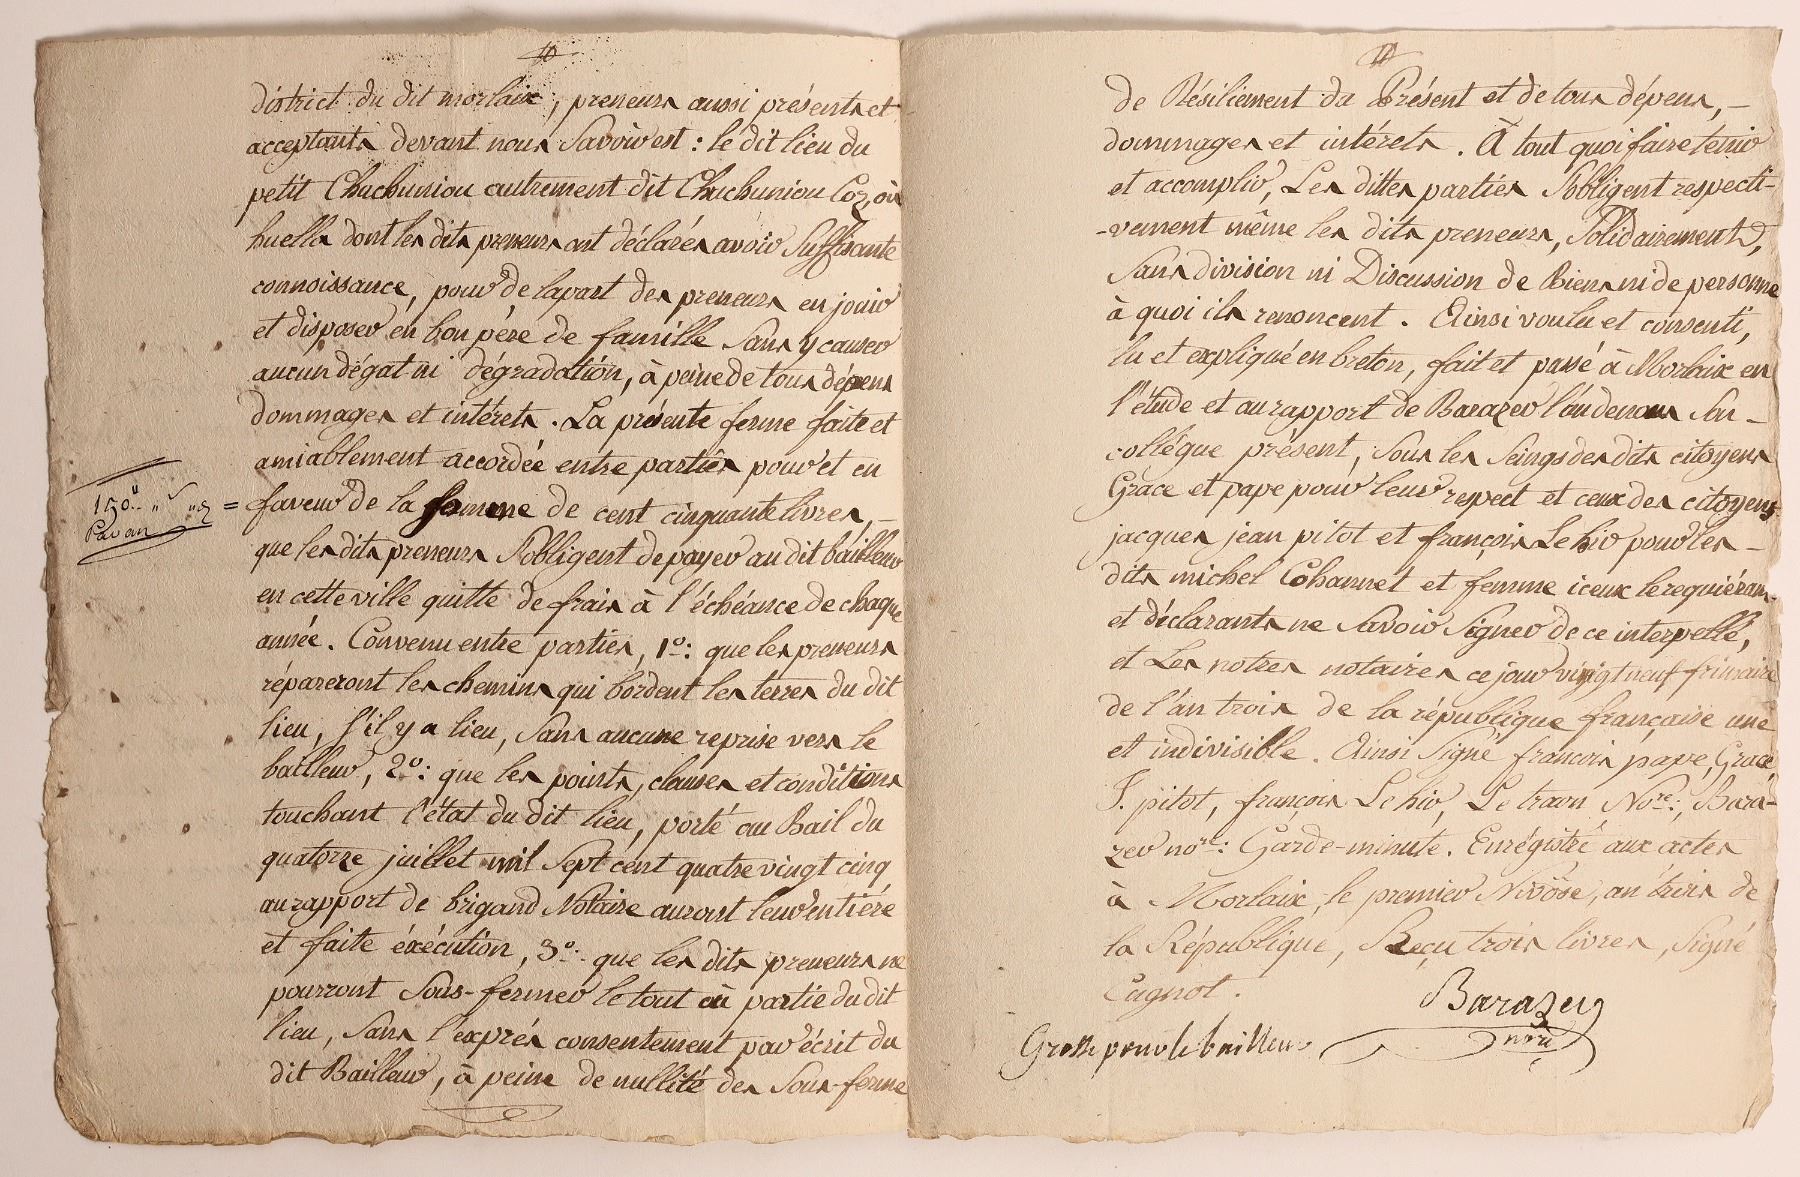 district du dit morlaix, preneurs aussi présents et
acceptants devant nous Savoir est : le dit lieu du
petit Chuchuniou autrement dit Chuchuniou Coz, ou
huella dont les dits preneurs ont déclarés avoir Suffisante
connoissance, pour de la part des preneurs en jouir
et disposer en bon pére de famille Sans y causer
aucun dégat ni dégradation, à peine de tous dépens
dommages et intérets. La présente ferme faite et
amiablement accordée entre parties pour et en
150ᵗᵗ " ˢ "ᵈ = faveur de la somme de cent cinquante livres, –
Pavan
que les dits preneurs S'obligent de payer au dit bailleur
en cette ville quitte de frais à l'échéance de chaque
année. Convenu entre parties, 1º: que les preneurs
répareront les chemins qui bordent les terres du dit
lieu, s'il y a lieu, Sans aucune reprise vers le
bailleur, 2º: que les points, clauses et conditions
touchant l'état du dit lieu, porté au Bail du
quatorze juillet mil Sept cent quatre vingt cinq
au rapport de brigand Notaire auront leur entiére
et faite éxécution, 3º: que les dits preneurs ne
pourront Sous-fermer le tout ou partie du dit
lieu, Sans l'exprés consentement par écrit du
dit Bailleur, à peine de nullité des Sous-ferme
de Résiliement du Présent et de tous dépens, –
dommages et intérets. À tout quoi faire tenir
et accomplir, Les dittes parties S'obligent respecti-
-vement même les dits preneurs, Solidairement,
Sans division ni Discussion de Biens ni de personne
à quoi ils renoncent. Ainsi voulu et consenti,
lu et expliqué en breton, fait et passé à Morlaix en
l'étude et au rapport de Barazer l'un de nous Son –
collégue présent, Sous les Seings des dits citoyens
Grace et pape pour leur respect et ceux des citoyens
jacques jean pitot et françois Le hir pour les –
dits michel Cohannet et femme iceux le requiérants
et déclarants ne Savoir Signer de ce interpellé,
et Les notres notaires ce jour vingt neuf frimaire
de l'an trois de la république française une
et indivisible. Ainsi Signé francois pape, Grace,
J. pitot, françois Le hir, Le traon, Noʳᵉ:, Bara-
zer noʳᵉ: Garde-minute. Enrégistré aux actes
à Morlaix, le premier Nivôse, an trois de
la République, Reçu trois livres, Signé
Cugnot.
Barazer
noʳᵉ
Grosse pour le bailleur